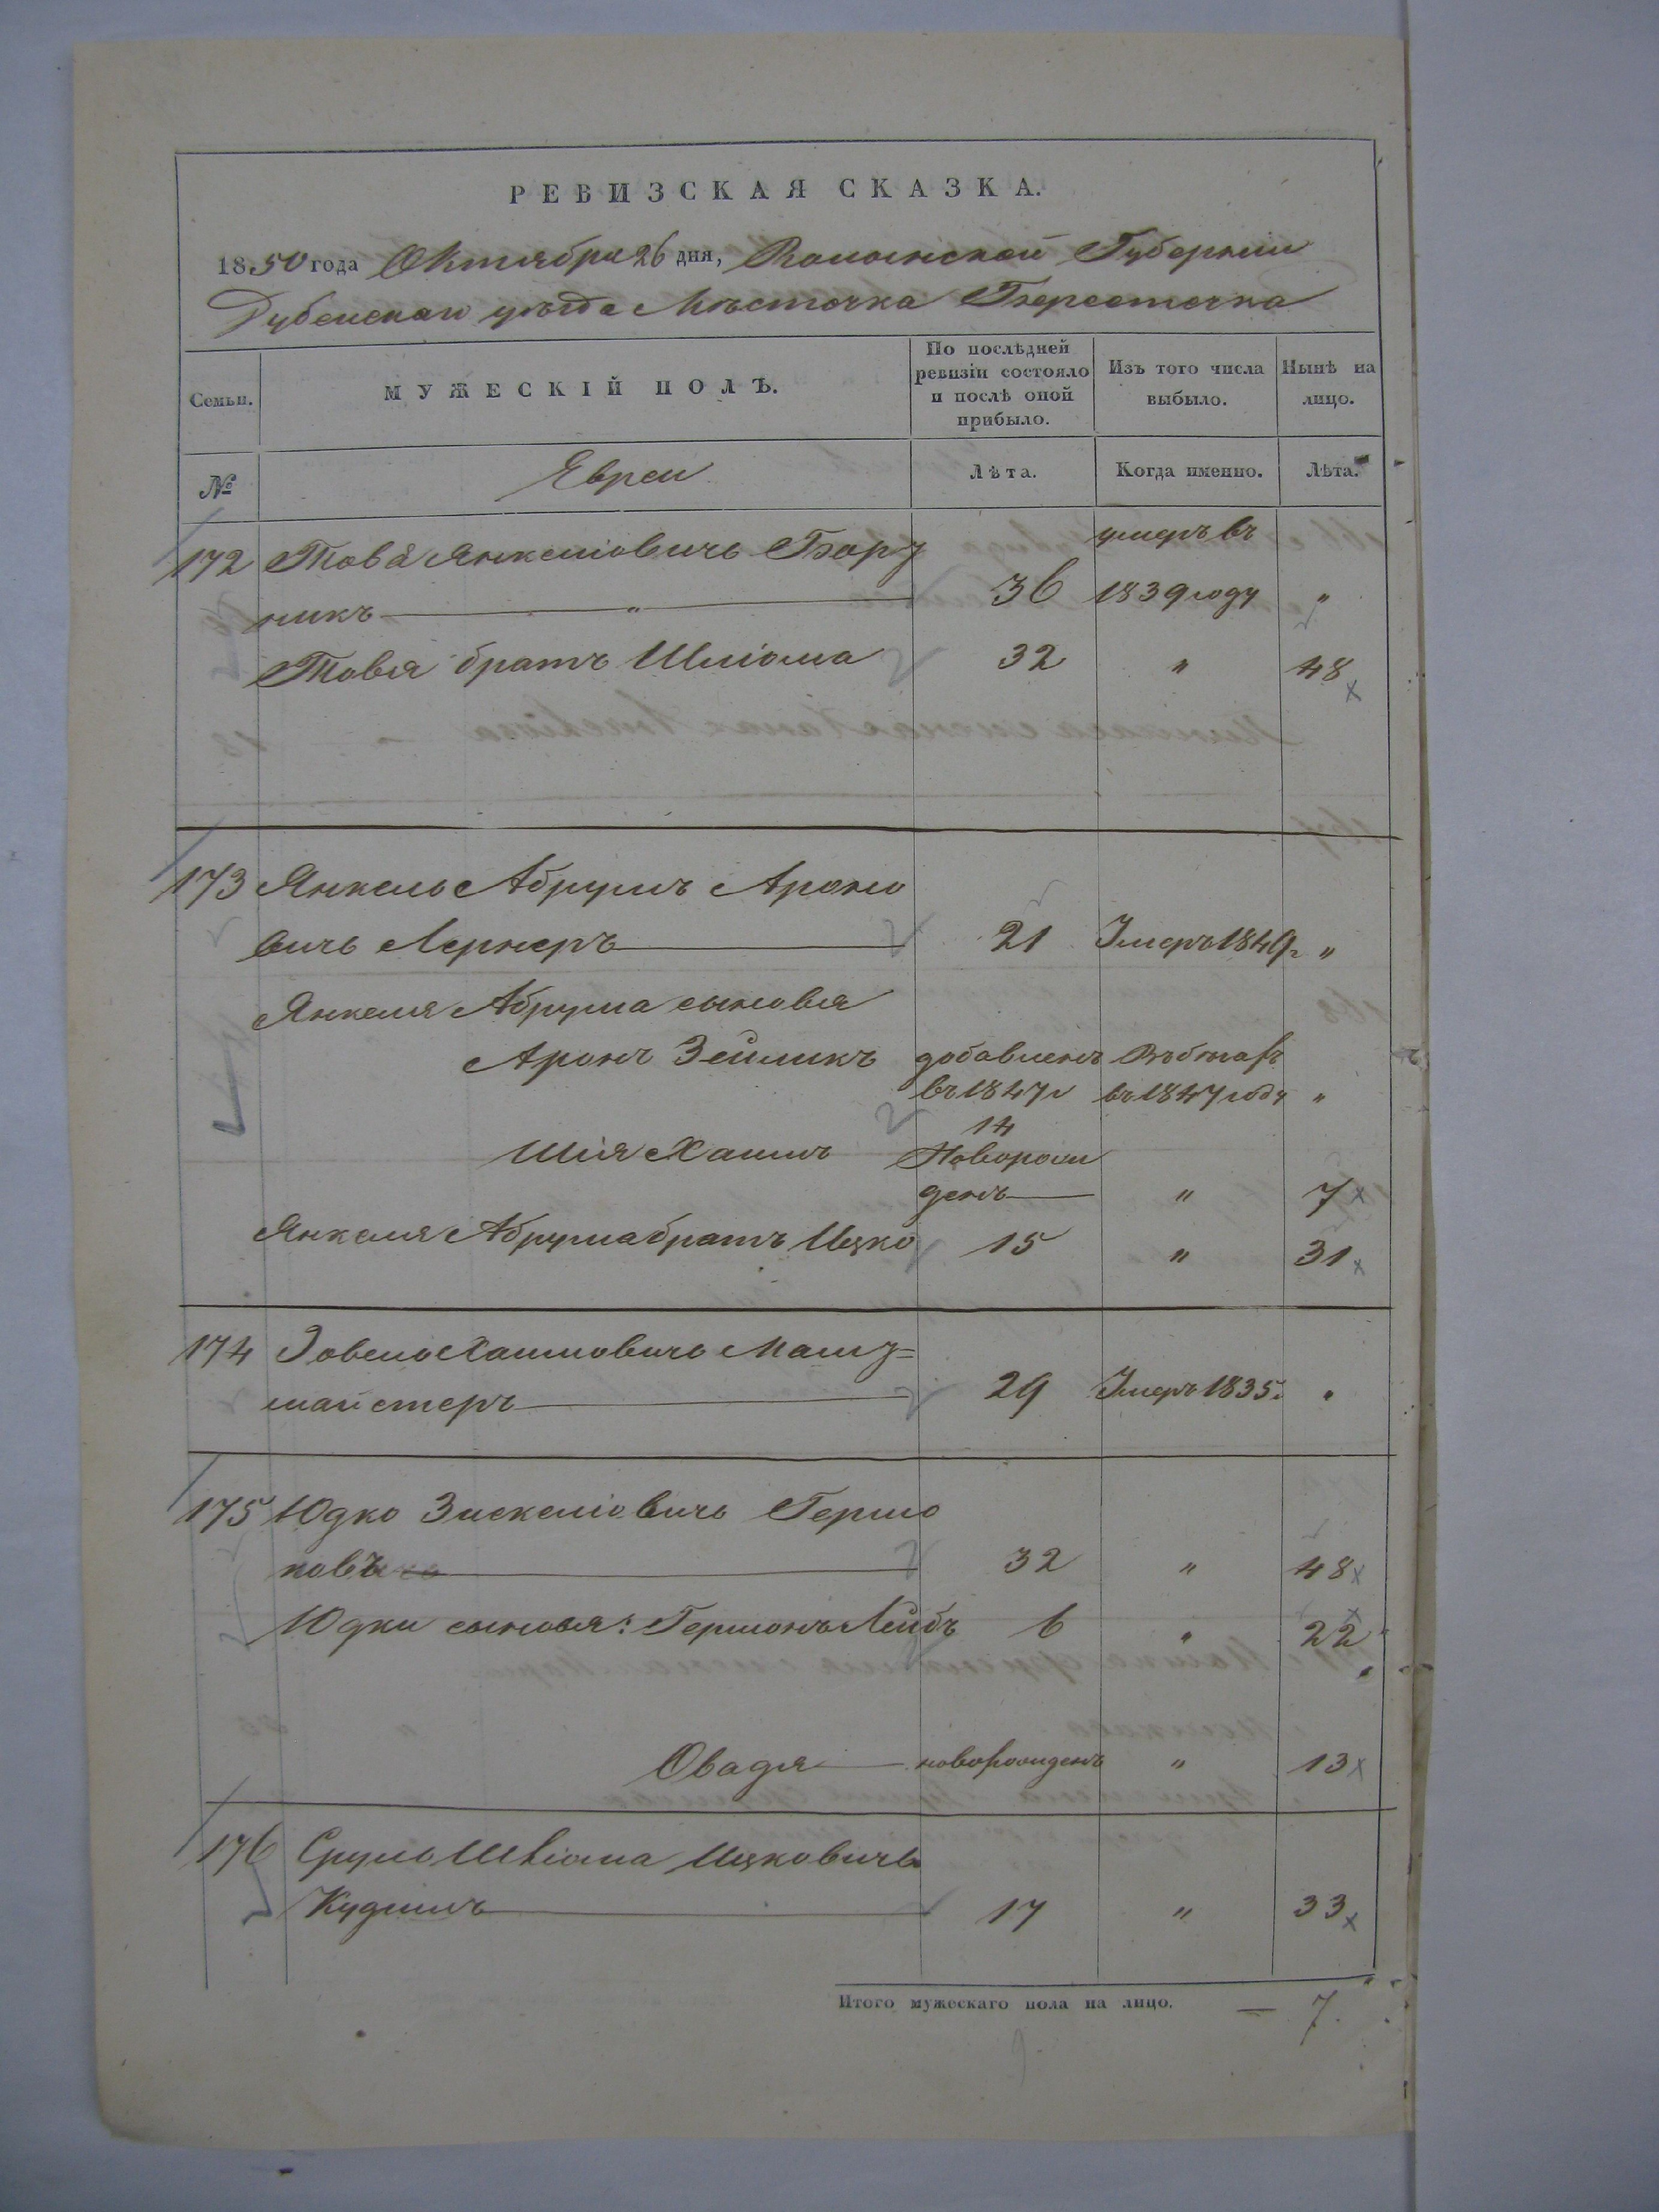 РЕВИЗСКАЯ СКАЗКА.
1850 года Октября 26 дня, Волынской Губернии
Дубенскаго уѣзда Мѣстечка Берестечка
Семьи.
МУЖЕСКІЙ ПОЛЪ.
По послѣдней ревизіи состояло и послѣ оной прибыло.
Изъ того числа выбыло.
Нынѣ на лицо.
№
Евреи
Лѣта.
Когда именно.
Лѣта.
умеръ въ
172 Товія Янкеліовичь Бору
никъ — " — 36 1839 году "
Товія братъ Шліома 32 " 48
173 Янкель Абрумъ Ароно
вичь Лернеръ — 21 Умеръ 1849г "
Янкеля Абрума сыновья
Аронъ Зейликъ добавленъ
въ 1847г въ 1847 году "
14
Шія Хаимъ Новорож
денъ — " 7
Янкеля Абрума братъ Ицко 15 " 31
174 Іовель Хаимовичь
майстеръ — 29 Умеръ 1835г "
175 Юдко Зискеліовичь Гершо
новъ — 32 " 48
Юдки сыновья: Гершонъ Лейбъ 6 " 22
Овадя — новорожденъ " 13
176 Сруль Шліома Ицковичь
Кудишъ — 17 " 33
Итого мужескаго пола на лицо. — 7.